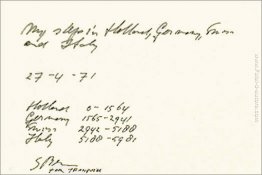 My steps in Holland, Germany, Swiss
and Italy
27-4-71
Holland 0-1564
Germany 1565-2941
Swiss 2942-5188
Italy 5188-5981